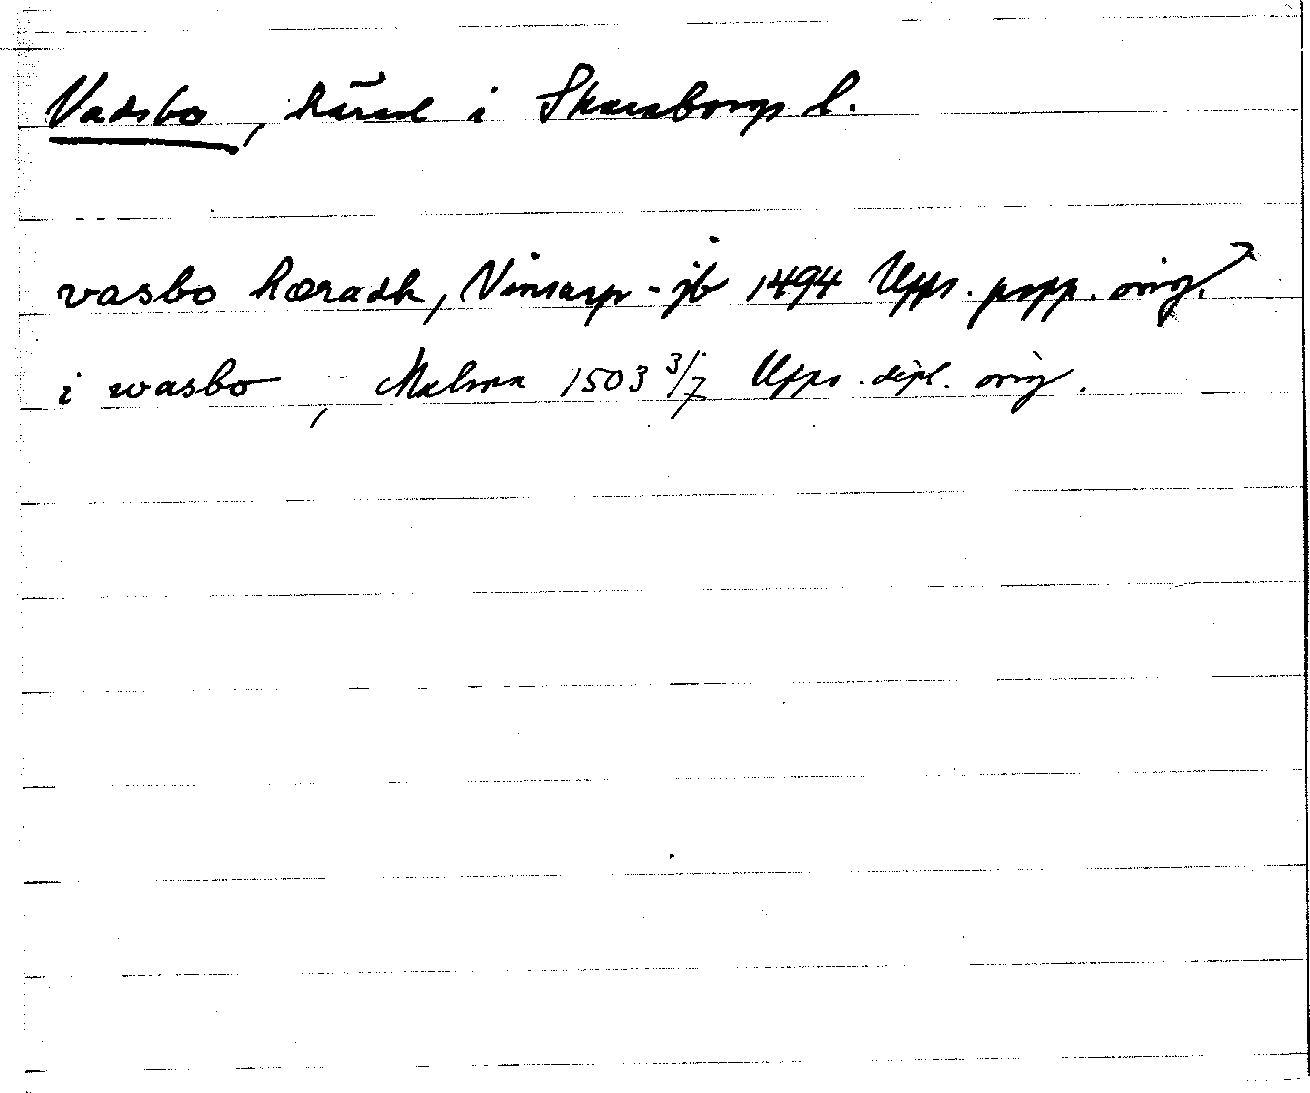 Vadsbo, härad i Skaraborgs l.
vasbo hæradh, Vinsarp-jb 1494 Upps. papp. orig.
i wasbo, Malma 1503 3/7 Upps. dipl. orig.